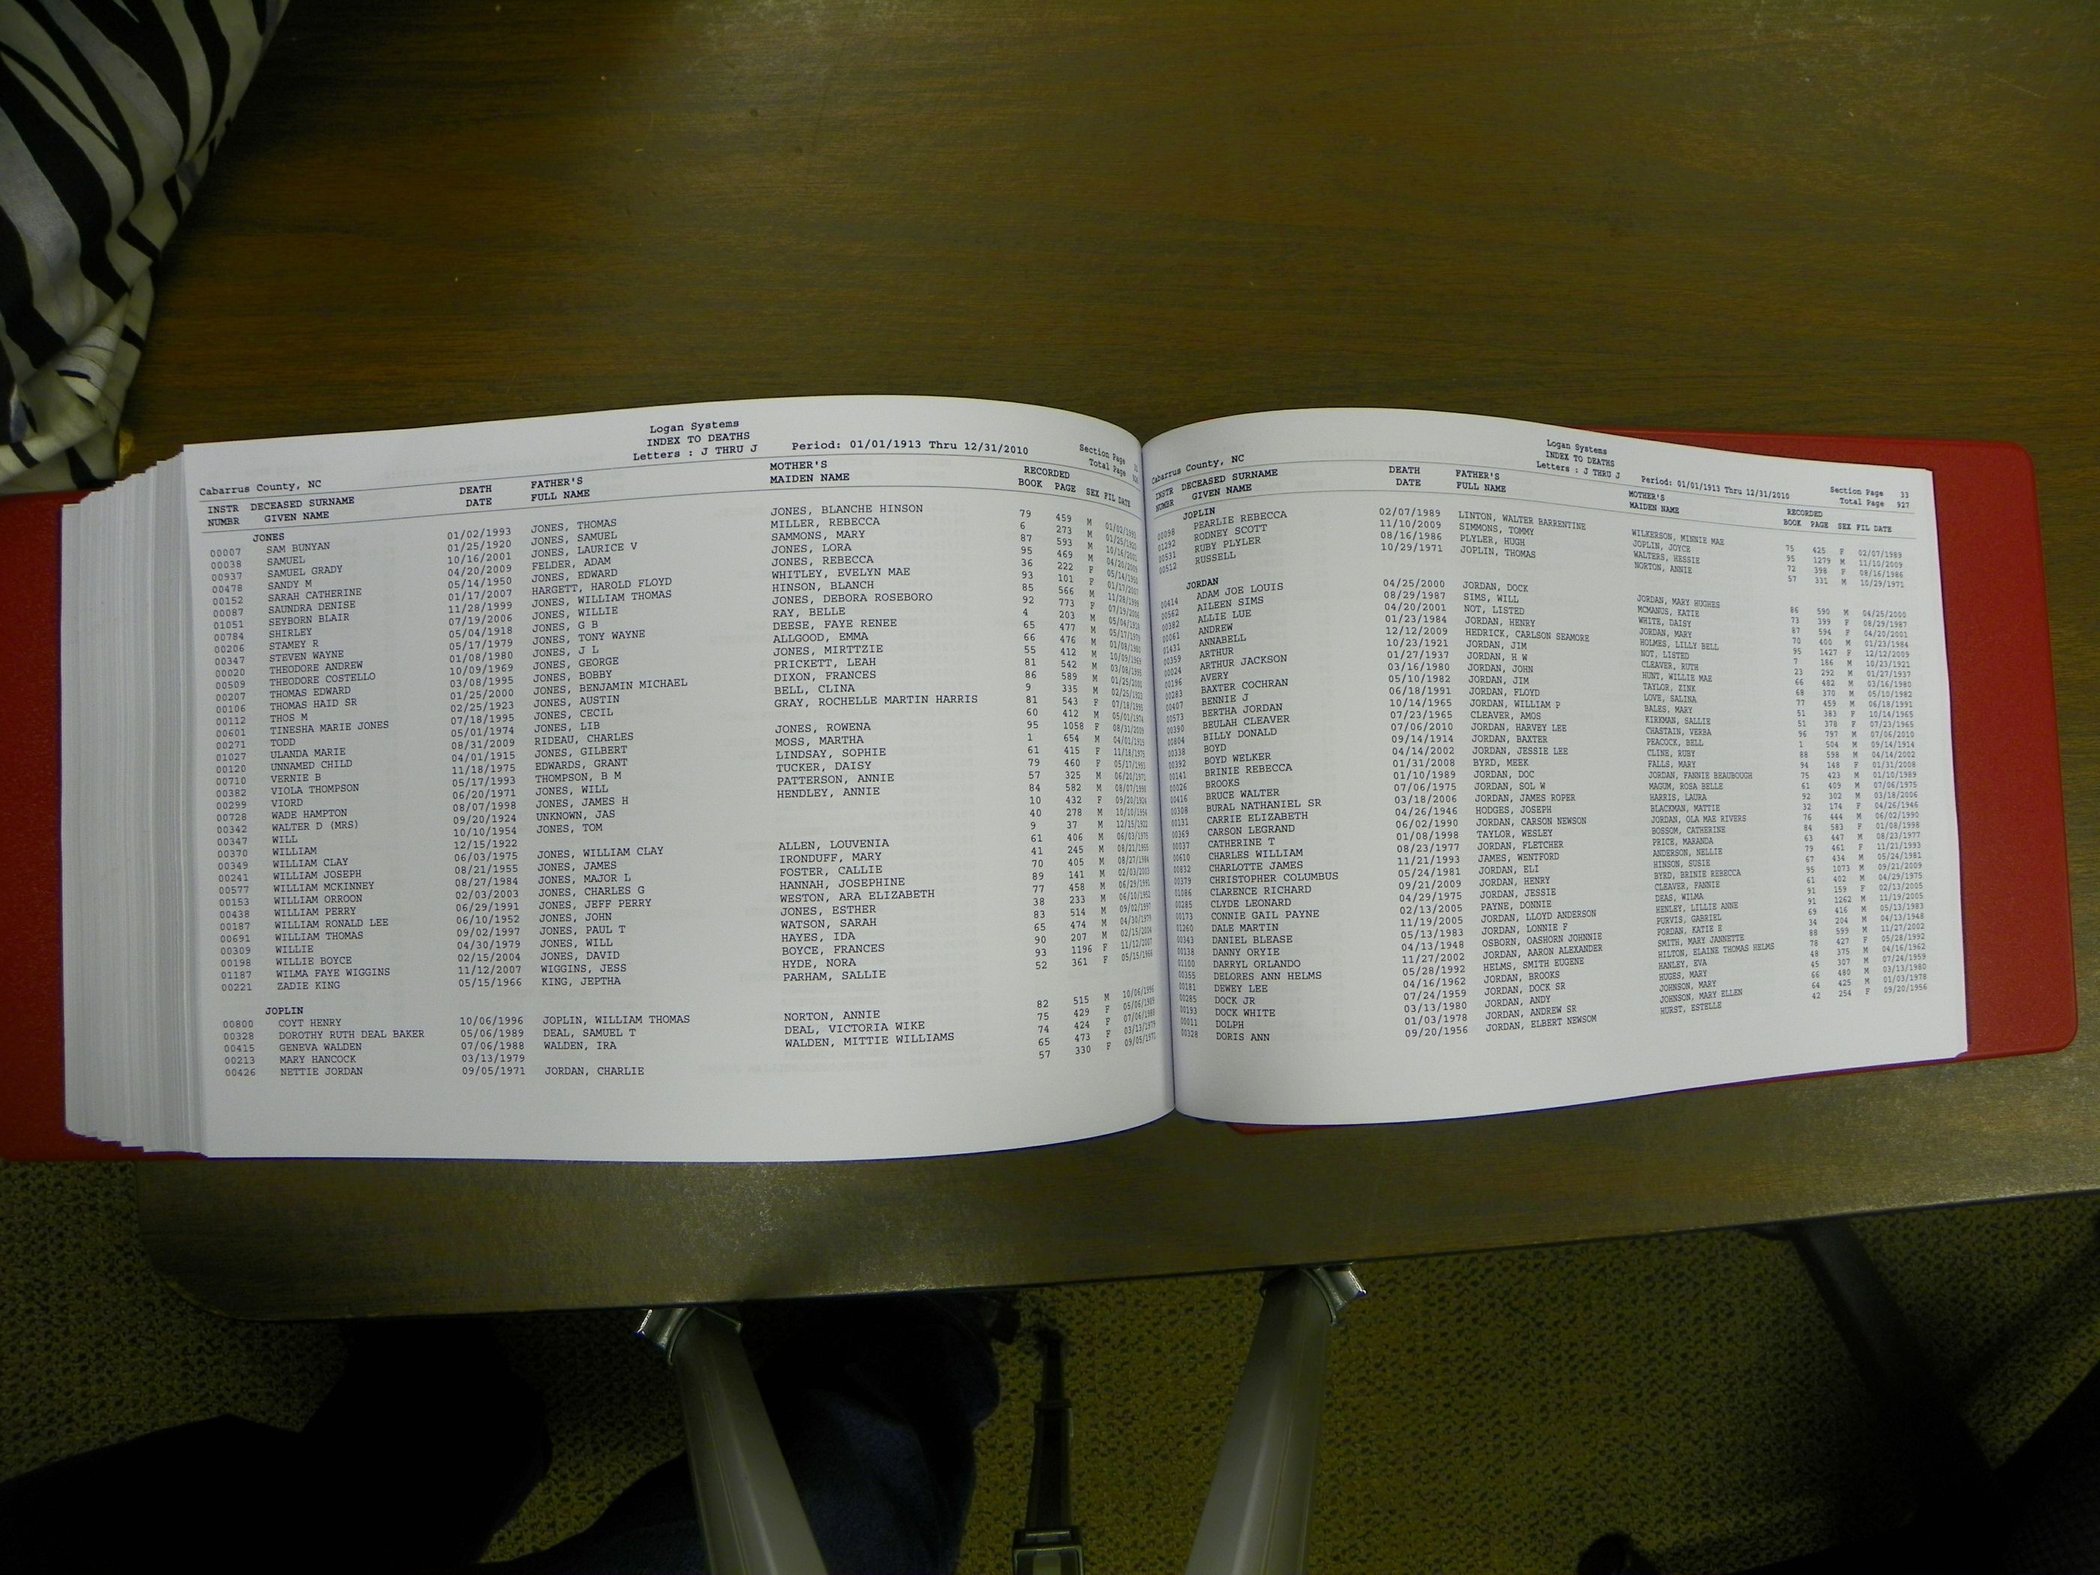 Logan Systems
INDEX TO DEATHS
Cabarrus County, NC Letters : J THRU J Period: 01/01/1913 Thru 12/31/2010 Section Page
Total Page
INSTR DECEASED SURNAME DEATH FATHER'S MOTHER'S RECORDED
NUMBR GIVEN NAME DATE FULL NAME MAIDEN NAME BOOK PAGE SEX FIL DATE
JONES
00007 SAM BUNYAN 01/02/1993 JONES, THOMAS JONES, BLANCHE HINSON 79 459 M 01/02/1993
00038 SAMUEL 01/25/1920 JONES, SAMUEL MILLER, REBECCA 6 273 M 01/25/1920
00937 SAMUEL GRADY 10/16/2001 JONES, LAURICE V SAMMONS, MARY 87 593 M 10/16/2001
00478 SANDY M 04/20/2009 FELDER, ADAM JONES, LORA 95 469 M 04/20/2009
00152 SARAH CATHERINE 05/14/1950 JONES, EDWARD JONES, REBECCA 36 222 F 05/14/1950
00087 SAUNDRA DENISE 01/17/2007 HARGETT, HAROLD FLOYD WHITLEY, EVELYN MAE 93 101 F 01/17/2007
01051 SEYBORN BLAIR 11/28/1999 JONES, WILLIAM THOMAS HINSON, BLANCH 85 566 M 11/28/1999
00784 SHIRLEY 07/19/2006 JONES, WILLIE JONES, DEBORA ROSEBORO 92 773 F 07/19/2006
00206 STAMEY R 05/04/1918 JONES, G B RAY, BELLE 4 203 M 05/04/1918
00347 STEVEN WAYNE 05/17/1979 JONES, TONY WAYNE DEESE, FAYE RENEE 65 477 M 05/17/1979
00020 THEODORE ANDREW 01/08/1980 JONES, J L ALLGOOD, EMMA 66 476 M 01/08/1980
00509 THEODORE COSTELLO 10/09/1969 JONES, GEORGE JONES, MIRTTZIE 55 412 M 10/09/1969
00207 THOMAS EDWARD 03/08/1995 JONES, BOBBY PRICKETT, LEAH 81 542 M 03/08/1995
00106 THOMAS HAID SR 01/25/2000 JONES, BENJAMIN MICHAEL DIXON, FRANCES 86 589 M 01/25/2000
00112 THOS M 02/25/1923 JONES, AUSTIN BELL, CLINA 9 335 M 02/25/1923
00601 TINESHA MARIE JONES 07/18/1995 JONES, CECIL GRAY, ROCHELLE MARTIN HARRIS 81 543 F 07/18/1995
00271 TODD 05/01/1974 JONES, LIB 60 412 M 05/01/1974
01027 ULANDA MARIE 08/31/2009 RIDEAU, CHARLES JONES, ROWENA 95 1058 F 08/31/2009
00120 UNNAMED CHILD 04/01/1915 JONES, GILBERT MOSS, MARTHA 1 654 M 04/01/1915
00710 VERNIE B 11/18/1975 EDWARDS, GRANT LINDSAY, SOPHIE 61 415 F 11/18/1975
00382 VIOLA THOMPSON 05/17/1993 THOMPSON, B M TUCKER, DAISY 79 460 F 05/17/1993
00299 VIORD 06/20/1971 JONES, WILL PATTERSON, ANNIE 57 325 M 06/20/1971
00728 WADE HAMPTON 08/07/1998 JONES, JAMES H HENDLEY, ANNIE 84 582 M 08/07/1998
00342 WALTER D (MRS) 09/20/1924 UNKNOWN, JAS 10 432 F 09/20/1924
00347 WILL 10/10/1954 JONES, TOM 40 278 M 10/10/1954
00370 WILLIAM 12/15/1922 9 37 M 12/15/1922
00349 WILLIAM CLAY 06/03/1975 JONES, WILLIAM CLAY ALLEN, LOUVENIA 61 406 M 06/03/1975
00241 WILLIAM JOSEPH 08/21/1955 JONES, JAMES IRONDUFF, MARY 41 245 M 08/21/1955
00577 WILLIAM MCKINNEY 08/27/1984 JONES, MAJOR L FOSTER, CALLIE 70 405 M 08/27/1984
00153 WILLIAM ORROON 02/03/2003 JONES, CHARLES G HANNAH, JOSEPHINE 89 141 M 02/03/2003
00438 WILLIAM PERRY 06/29/1991 JONES, JEFF PERRY WESTON, ARA ELIZABETH 77 458 M 06/29/1991
00187 WILLIAM RONALD LEE 06/10/1952 JONES, JOHN JONES, ESTHER 38 233 M 06/10/1952
00691 WILLIAM THOMAS 09/02/1997 JONES, PAUL T WATSON, SARAH 83 514 M 09/02/1997
00309 WILLIE 04/30/1979 JONES, WILL HAYES, IDA 65 474 M 04/30/1979
00198 WILLIE BOYCE 02/15/2004 JONES, DAVID BOYCE, FRANCES 90 207 M 02/15/2004
01187 WILMA FAYE WIGGINS 11/12/2007 WIGGINS, JESS HYDE, NORA 93 1196 F 11/12/2007
00221 ZADIE KING 05/15/1966 KING, JEPTHA PARHAM, SALLIE 52 361 F 05/15/1966
JOPLIN
00800 COYT HENRY 10/06/1996 JOPLIN, WILLIAM THOMAS NORTON, ANNIE 82 515 M 10/06/1996
00328 DOROTHY RUTH DEAL BAKER 05/06/1989 DEAL, SAMUEL T DEAL, VICTORIA WIKE 75 429 F 05/06/1989
00415 GENEVA WALDEN 07/06/1988 WALDEN, IRA WALDEN, MITTIE WILLIAMS 74 424 F 07/06/1988
00213 MARY HANCOCK 03/13/1979 65 473 F 03/13/1979
00426 NETTIE JORDAN 09/05/1971 JORDAN, CHARLIE 57 330 F 09/05/1971
Logan Systems
INDEX TO DEATHS
Cabarrus County, NC Letters : J THRU J Period: 01/01/1913 Thru 12/31/2010 Section Page 33
Total Page 927
INSTR DECEASED SURNAME DEATH FATHER'S MOTHER'S RECORDED
NUMBR GIVEN NAME DATE FULL NAME MAIDEN NAME BOOK PAGE SEX FIL DATE
JOPLIN
00098 PEARLIE REBECCA 02/07/1989 LINTON, WALTER BARRENTINE WILKERSON, MINNIE MAE 75 425 F 02/07/1989
01292 RODNEY SCOTT 11/10/2009 SIMMONS, TOMMY JOPLIN, JOYCE 95 1279 M 11/10/2009
00531 RUBY PLYLER 08/16/1986 PLYLER, HUGH WALTERS, HESSIE 72 398 F 08/16/1986
00512 RUSSELL 10/29/1971 JOPLIN, THOMAS NORTON, ANNIE 57 331 M 10/29/1971
JORDAN
00414 ADAM JOE LOUIS 04/25/2000 JORDAN, DOCK JORDAN, MARY HUGHES 86 590 M 04/25/2000
00562 AILEEN SIMS 08/29/1987 SIMS, WILL MCMANUS, KATIE 73 399 F 08/29/1987
00382 ALLIE LUE 04/20/2001 NOT, LISTED WHITE, DAISY 87 594 F 04/20/2001
00061 ANDREW 01/23/1984 JORDAN, HENRY JORDAN, MARY 70 400 M 01/23/1984
01431 ANNABELL 12/12/2009 HEDRICK, CARLSON SEAMORE HOLMES, LILLY BELL 95 1427 F 12/12/2009
00359 ARTHUR 10/23/1921 JORDAN, JIM NOT, LISTED 7 186 M 10/23/1921
00024 ARTHUR JACKSON 01/27/1937 JORDAN, H W CLEAVER, RUTH 23 292 M 01/27/1937
00196 AVERY 03/16/1980 JORDAN, JOHN HUNT, WILLIE MAE 66 482 M 03/16/1980
00283 BAXTER COCHRAN 05/10/1982 JORDAN, JIM TAYLOR, ZINK 68 370 M 05/10/1982
00407 BENNIE J 06/18/1991 JORDAN, FLOYD LOVE, SALINA 77 459 M 06/18/1991
00573 BERTHA JORDAN 10/14/1965 JORDAN, WILLIAM P BALES, MARY 51 383 F 10/14/1965
00390 BEULAH CLEAVER 07/23/1965 CLEAVER, AMOS KIRKMAN, SALLIE 51 378 F 07/23/1965
00804 BILLY DONALD 07/06/2010 JORDAN, HARVEY LEE CHASTAIN, VERBA 96 797 M 07/06/2010
00338 BOYD 09/14/1914 JORDAN, BAXTER PEACOCK, BELL 1 504 M 09/14/1914
00392 BOYD WELKER 04/14/2002 JORDAN, JESSIE LEE CLINE, RUBY 88 598 M 04/14/2002
00141 BRINIE REBECCA 01/31/2008 BYRD, MEEK FALLS, MARY 94 148 F 01/31/2008
00026 BROOKS 01/10/1989 JORDAN, DOC JORDAN, FANNIE BEAUBOUGH 75 423 M 01/10/1989
00416 BRUCE WALTER 07/06/1975 JORDAN, SOL W MAGUM, ROSA BELLE 61 409 M 07/06/1975
00308 BURAL NATHANIEL SR 03/18/2006 JORDAN, JAMES ROPER HARRIS, LAURA 92 302 M 03/18/2006
00131 CARRIE ELIZABETH 04/26/1946 HODGES, JOSEPH BLACKMAN, MATTIE 32 174 F 04/26/1946
00369 CARSON LEGRAND 06/02/1990 JORDAN, CARSON NEWSON JORDAN, OLA MAE RIVERS 76 444 M 06/02/1990
00037 CATHERINE T 01/08/1998 TAYLOR, WESLEY BOSSOM, CATHERINE 84 583 F 01/08/1998
00610 CHARLES WILLIAM 08/23/1977 JORDAN, FLETCHER PRICE, MARANDA 63 447 M 08/23/1977
00832 CHARLOTTE JAMES 11/21/1993 JAMES, WENTFORD ANDERSON, NELLIE 79 461 F 11/21/1993
00379 CHRISTOPHER COLUMBUS 05/24/1981 JORDAN, ELI HINSON, SUSIE 67 434 M 05/24/1981
01086 CLARENCE RICHARD 09/21/2009 JORDAN, HENRY BYRD, BRINIE REBECCA 95 1073 M 09/21/2009
00285 CLYDE LEONARD 04/29/1975 JORDAN, JESSIE CLEAVER, FANNIE 61 402 M 04/29/1975
00173 CONNIE GAIL PAYNE 02/13/2005 PAYNE, DONNIE DEAS, WILMA 91 159 F 02/13/2005
01260 DALE MARTIN 11/19/2005 JORDAN, LLOYD ANDERSON HENLEY, LILLIE ANNE 91 1262 M 11/19/2005
00343 DANIEL BLEASE 05/13/1983 JORDAN, LONNIE F PURVIS, GABRIEL 69 416 M 05/13/1983
00138 DANNY ORYIE 04/13/1948 OSBORN, OASHORN JOHNNIE FORDAN, KATIE B 34 204 M 04/13/1948
01100 DARRYL ORLANDO 11/27/2002 JORDAN, AARON ALEXANDER SMITH, MARY JANNETTE 88 599 M 11/27/2002
00355 DELORES ANN HELMS 05/28/1992 HELMS, SMITH EUGENE HILTON, ELAINE THOMAS HELMS 78 427 F 05/28/1992
00181 DEWEY LEE 04/16/1962 JORDAN, BROOKS HANLEY, EVA 48 375 M 04/16/1962
00285 DOCK JR 07/24/1959 JORDAN, DOCK SR HUGES, MARY 45 307 M 07/24/1959
00193 DOCK WHITE 03/13/1980 JORDAN, ANDY JOHNSON, MARY 66 480 M 03/13/1980
00011 DOLPH 01/03/1978 JORDAN, ANDREW SR JOHNSON, MARY ELLEN 64 425 M 01/03/1978
00328 DORIS ANN 09/20/1956 JORDAN, ELBERT NEWSOM HURST, ESTELLE 42 254 F 09/20/1956